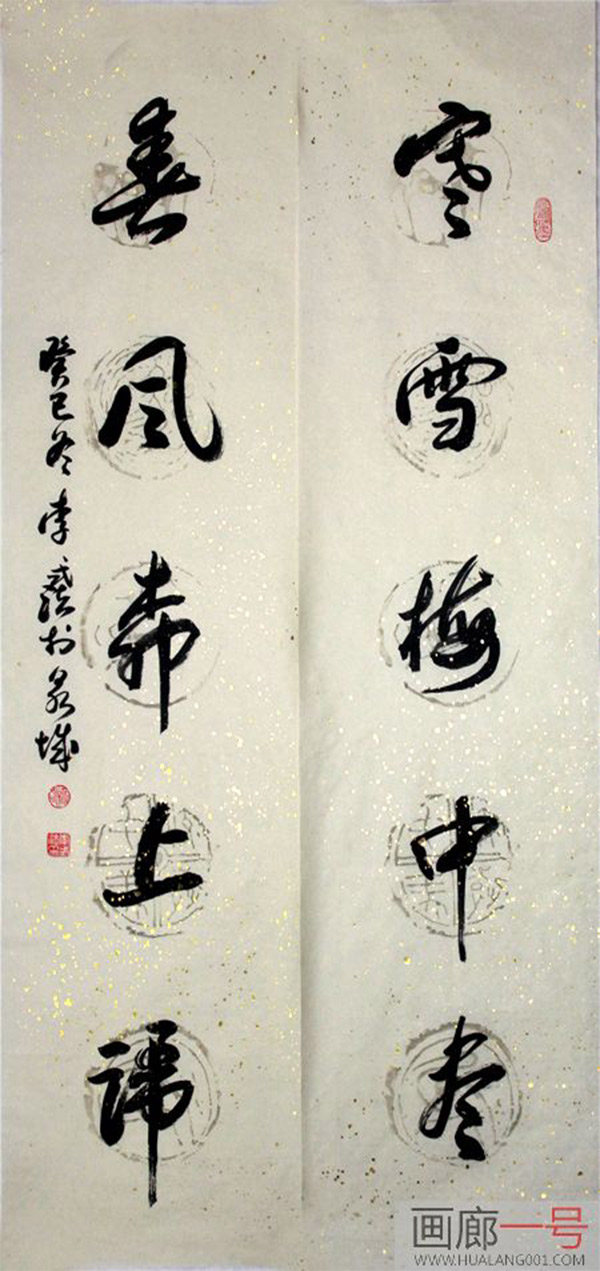 寒雪梅中尽
春风柳上归
癸巳冬李於泉城
画廊一号
WWW.HUALANG001.COM